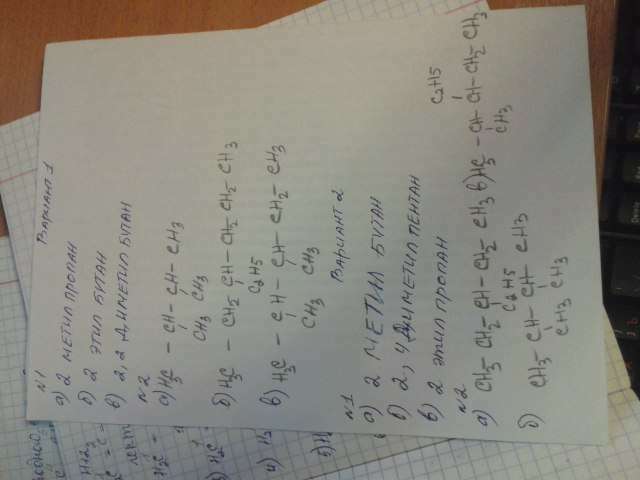 Вариант 1
№1
а) 2 метил пропан
б) 2 этил бутан
в) 2,2 диметил бутан
№2
а) H3C - CH - CH - CH3
CH3 CH3
б) H3C - CH2 - CH - CH2 - CH2 - CH3
C2H5
в) H3C - CH - CH - CH2 - CH3
CH3 CH3
Вариант 2
№1
а) 2 метил бутан
б) 2,4 диметил пентан
в) 2 этил пропан
№2
а) CH3 - CH2 - CH - CH2 - CH3
C2H5
б) CH3 - CH - CH - CH3
CH3 CH3
C2H5
в) H3C - CH - CH - CH2 - CH3
CH3